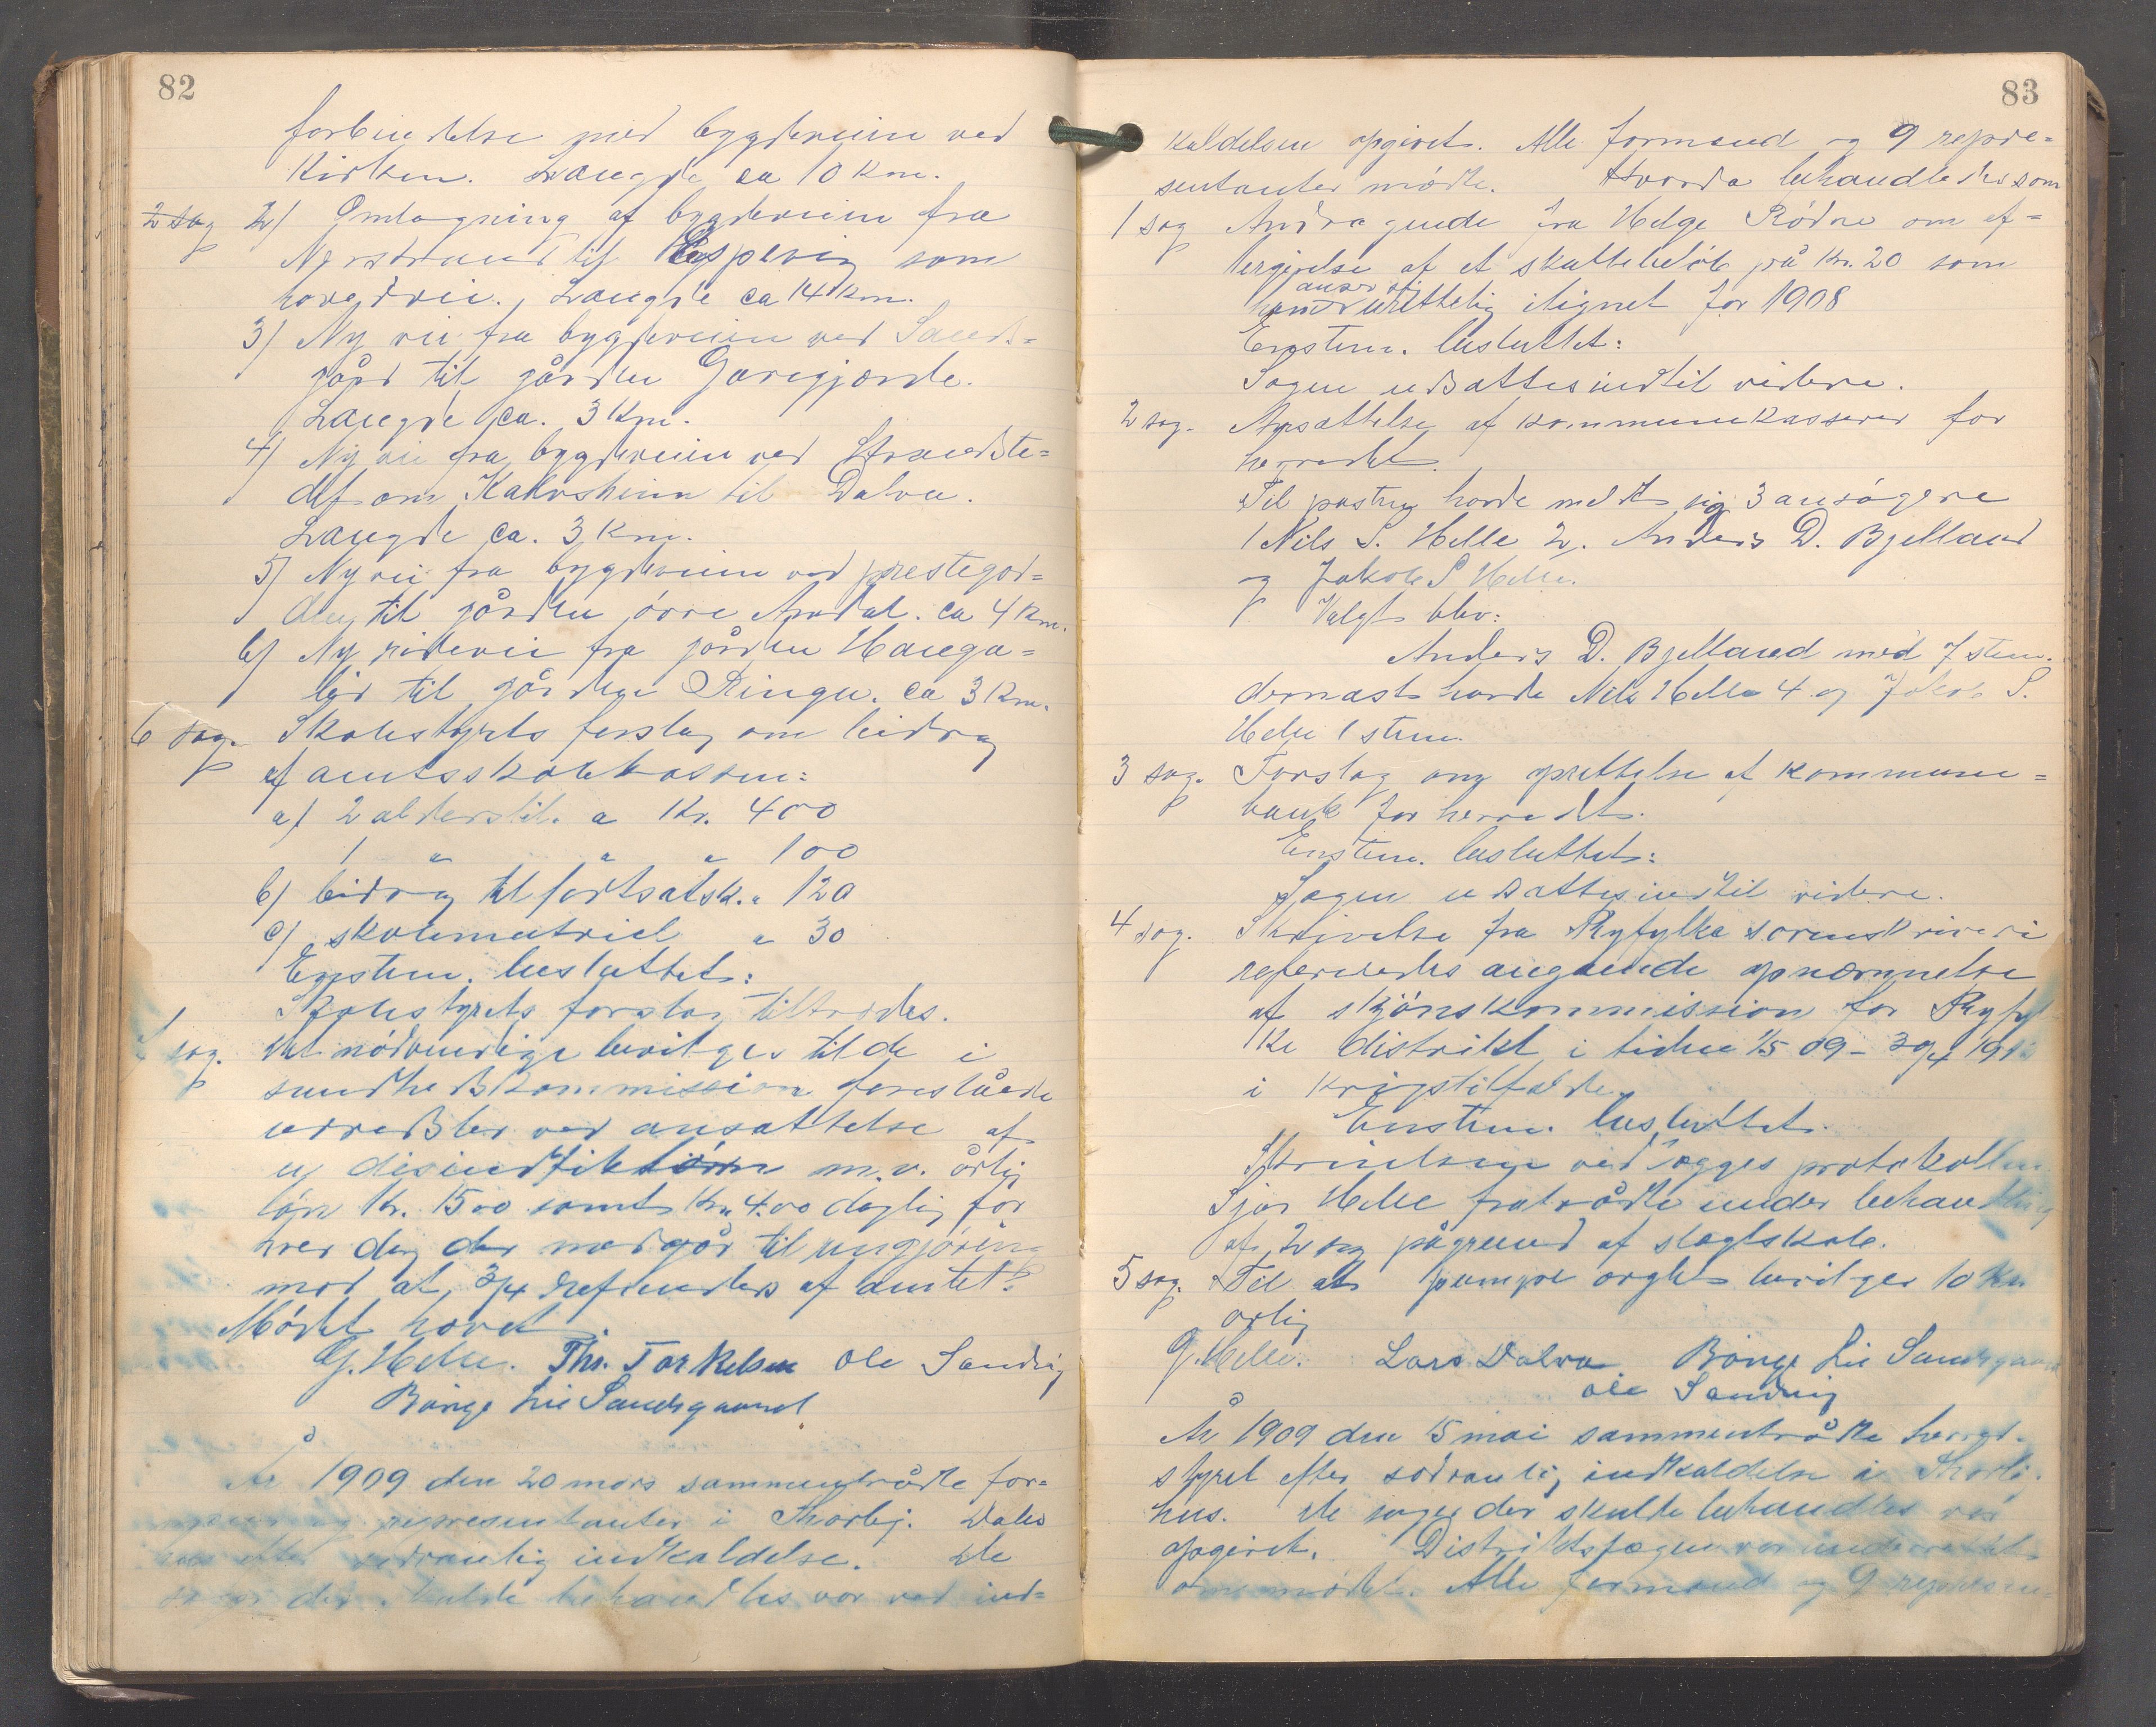 82
forbindelse med bygdeveien ved
Kirken. Længde ca 10 Km.
2 sag 2) Omlægning af bygdeveien fra
Nerstrand til Espevig som
hovedvei. Længde ca 14 Km.
3) Ny vei fra bygdeveien ved Sands=
gård til gården Garegjærde.
Længde ca. 3 Km.
4) Ny vei fra bygdeveien ved Strandste=
det om Kalvsheim til Dalva.
Længde ca. 3 Km.
5) Ny vei fra bygdeveien ved prestegår=
den til gården övre Amdal. ca 4 Km.
6) Ny ridevei fra gården Hauga=
lid til gården Ringen. ca 3 Km.
6 sag. Skolestyrets forslag om bidrag
af amtsskolekassen:
a) 2 alderstil. a Kr. 400
1 " " " 100
b) bidrag til fortsatsk. " 120
c) skolematriel " 30
Enstem. besluttet:
Skolestyrets forslag tiltrædes.
7 sag. Det nödvendige bevilges til de i
sundhedskommission foreslåede
udredsler ved ansættelse af
en disindfiktörn m.v. årlig
lön Kr. 15 00 samt Kr. 4.00 daglig for
hver dag der medgår til rengjöring
mod at 3/4 refunders af amtet.
Mödet hævet.
G. Helle. Ths. Torkelsen Ole Sandvig
Börge Lie Sandsgaard
År 1909 den 20 mars sammentrådte for=
mænd og representanter i Thorbj. Dales
hus efter sedvanlig indkaldelse. De
sager der skulde behandles var ved ind=
83
kaldelsen opgivet. Alle formænd og 9 repre=
sentanter mödte. Hvorda behandledes som
1 sag Andragende fra Helge Rödne om ef=
tergivelse af et skattebelöb på Kr. 20 som
han anser urettelig ilignet for 1908
Enstem. besluttet:
Sagen udsættes indtil videre.
2 sag. Ansættelse af kommunekasserer for
herredet.
Til posten havde meldt sig 3 ansögere
1 Nils S. Helle 2. Anders D. Bjelland
og Jakob S Helle.
Valgt blev:
Anders D. Bjelland med 7 stem.
dernæst havde Nils Helle 4 og Jakob S.
Helle 1 stem.
3 sag. Forslag om oprettelse af kommune=
bank for herredet.
Enstem. besluttet:
Sagen udsættes indtil videre.
4 sag. Skrivelse fra Ryfylke sorenskriveri
refereredes angående opnævnelse
af skjönskommission for Ryfyl
ke distrikt i tiden 1/5 09 - 30/4 191
i krigstilfælde.
Enstem. besluttet.
Skrivelsen vedlægges protokollen
Sjur Helle fratrådte under behandling
af 2 sag pågrund af slægtskab.
5 sag. Til at pumpe orglet bevilges 10 Kr.
årlig
G. Helle. Lars Dalva Börge Lie Sandsgaard
Ole Sandvig
År 1909 den 15 mai sammentrådte hereds-
styret efter sedvanlig indkaldelse i Thorbj.
hus. De sager der skulde behandles var
opgivet. Distriktslægen var underrettet
om mödet. Alle formænd og 9 represen